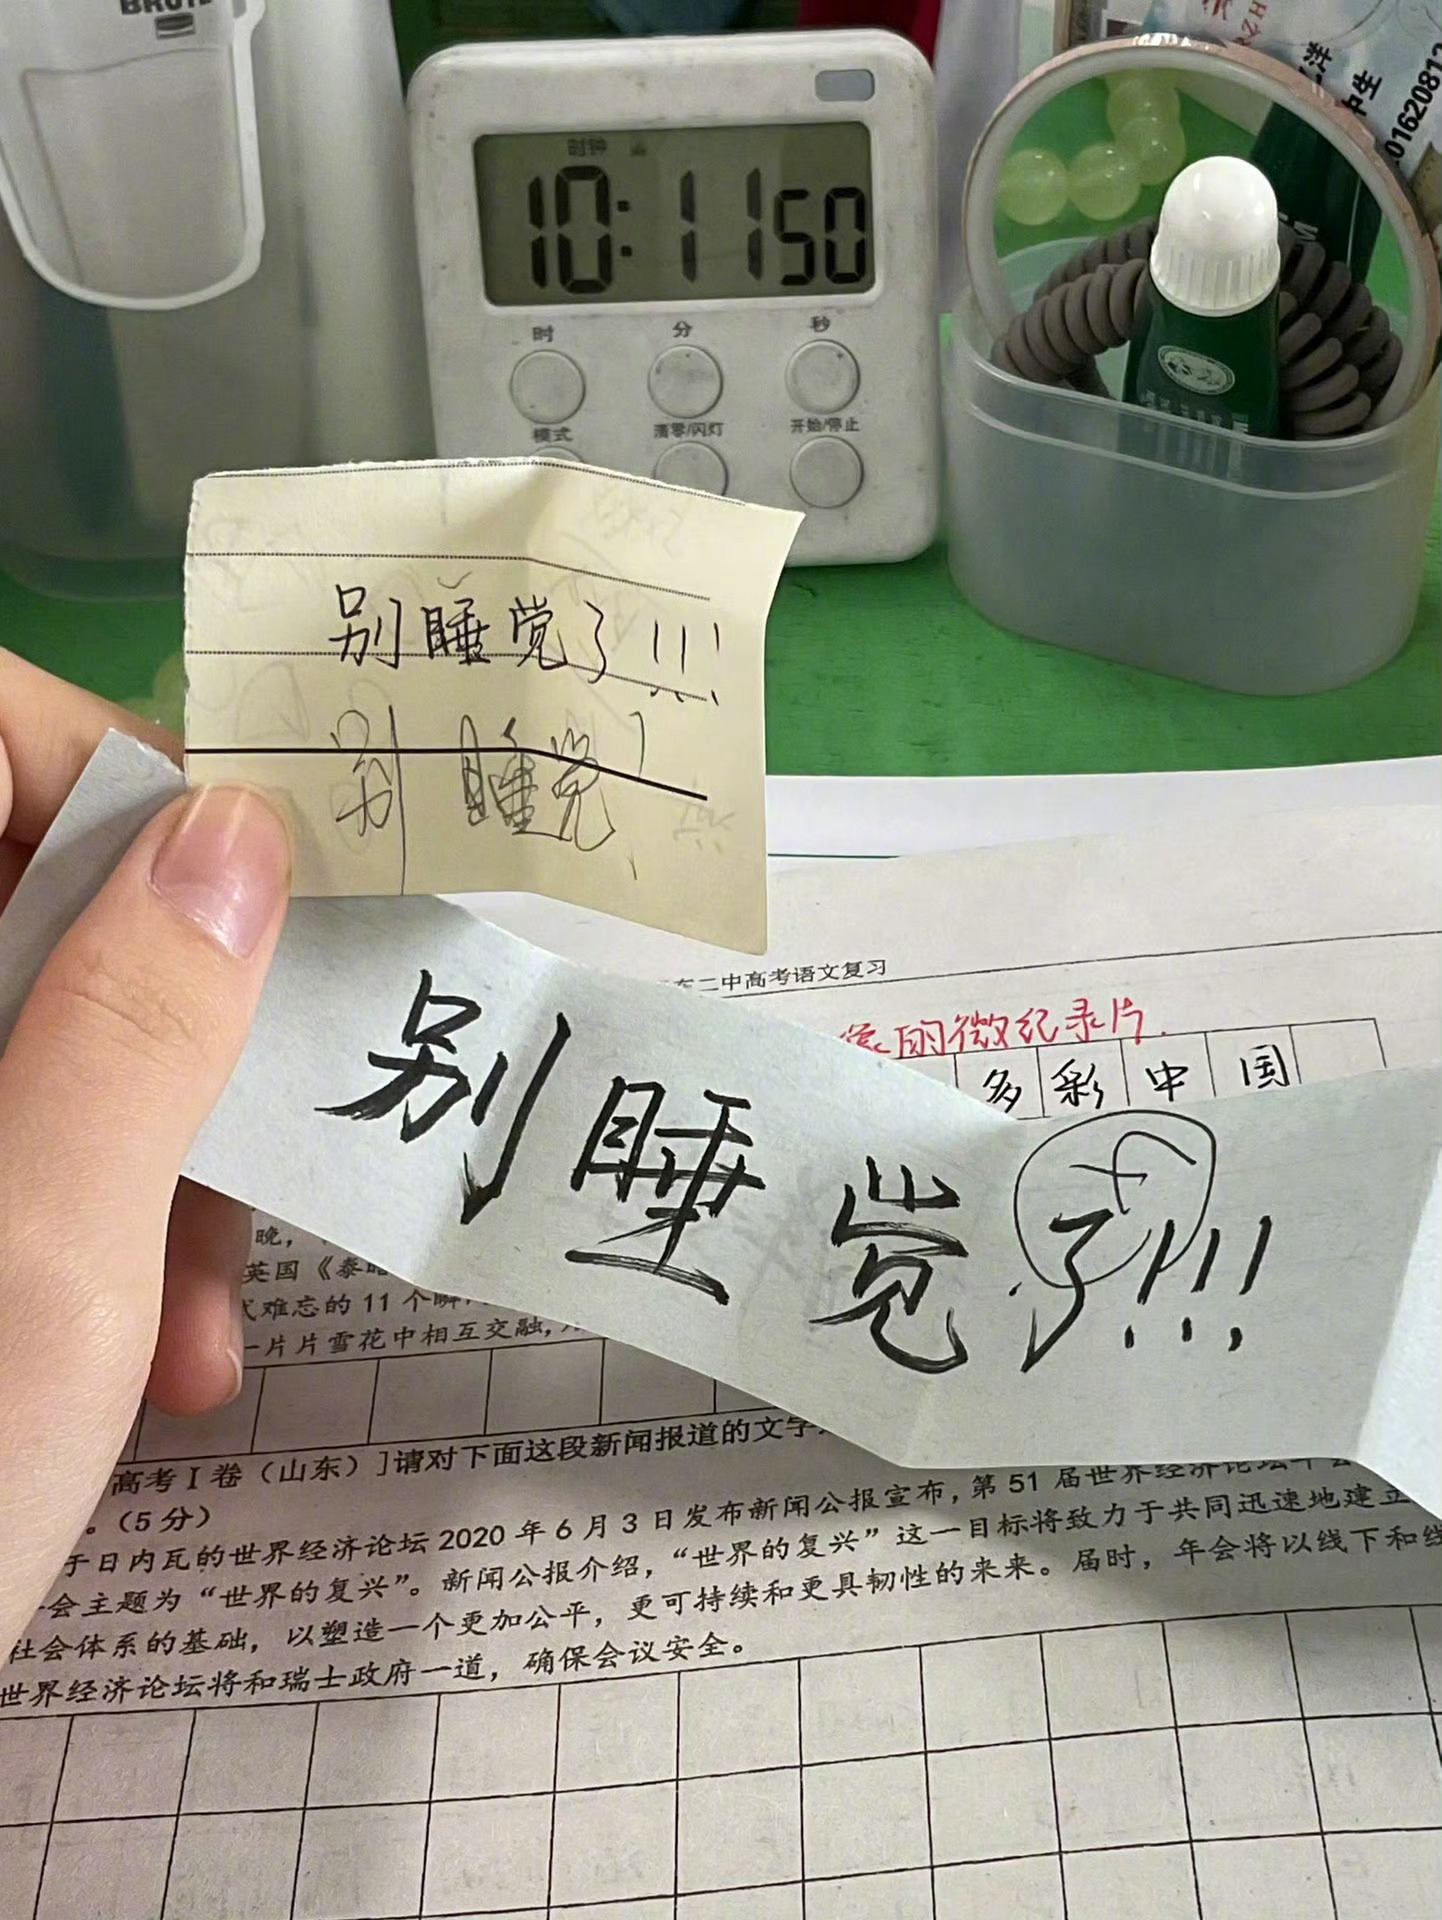 时钟
10:11 50
时 分 秒
模式 清零/闪灯 开始/停止
中生
01620812
别睡觉了!!!
别睡觉!
二中高考语文复习
的微纪录片.
多彩中国
别睡觉了!!!
晚,
英国《泰晤
难忘的11个瞬
一片片雪花中相互交融,
高考Ⅰ卷(山东)]请对下面这段新闻报道的文字
。(5分)
于日内瓦的世界经济论坛2020年6月3日发布新闻公报宣布,第51届世界经济论坛年会
会主题为“世界的复兴”。新闻公报介绍,“世界的复兴”这一目标将致力于共同迅速地建立
社会体系的基础,以塑造一个更加公平,更可持续和更具韧性的未来。届时,年会将以线下和线
世界经济论坛将和瑞士政府一道,确保会议安全。